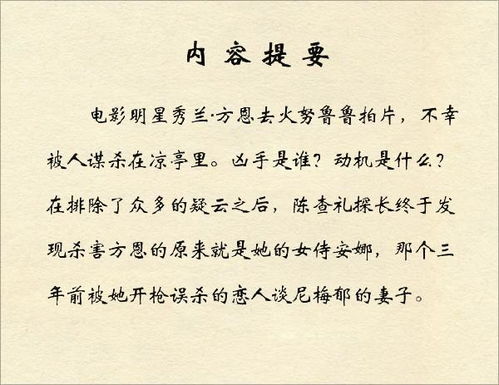 内容提要
电影明星秀兰·方恩去火努鲁鲁拍片，不幸
被人谋杀在凉亭里。凶手是谁？动机是什么？
在排除了众多的疑云之后，陈查礼探长终于发
现杀害方恩的原来就是她的女侍安娜，那个三
年前被她开枪误杀的恋人谈尼梅郁的妻子。